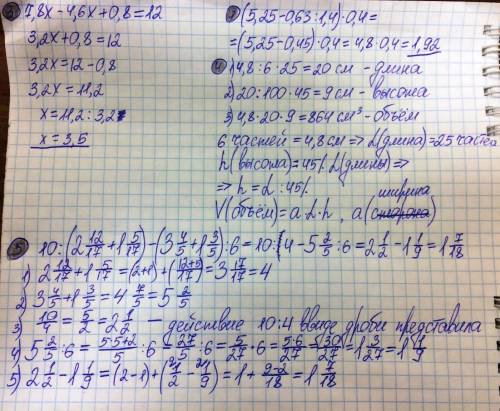 2) 7,8x - 4,6x + 0,8 = 12
3,2x + 0,8 = 12
3,2x = 12 - 0,8
3,2x = 11,2
x = 11,2 : 3,2
x = 3,5
1) (5,25 - 0,63 : 1,4) · 0,4 =
= (5,25 - 0,45) · 0,4 = 4,8 · 0,4 = 1,92
4) 1) 4,8 : 6 · 25 = 20 см - длина
2) 20 : 100 · 45 = 9 см - высота
3) 4,8 · 20 · 9 = 864 см³ - объём
6 частей = 4,8 см => L(длина) = 25 частей
h(высота) = 45% L(длины) =>
=> h = L : 45%
ширина
V(объём) = a · L · h , a (сторона)
5) 10 : (2 12/17 + 1 5/17) - (3 4/5 + 1 3/5) : 6 = 10 : 4 - 5 2/5 : 6 = 2 1/2 - 1 1/9 = 1 7/18
1) 2 12/17 + 1 5/17 = (2+1) + (12+5/17) = 3 17/17 = 4
2) 3 4/5 + 1 3/5 = 4 7/5 = 5 2/5
3) 10/4 = 5/2 = 2 1/2 - действие 10:4 ввиде дроби представила
4) 5 2/5 : 6 = 5·5+2/5 : 6 = 27/5 : 6 = 5/27 · 6 = 5·6/27 = 30/27 = 1 3/27 = 1 1/9
5) 2 1/2 - 1 1/9 = (2-1) + (1/2 - 1/9) = 1 + 9-2/18 = 1 7/18